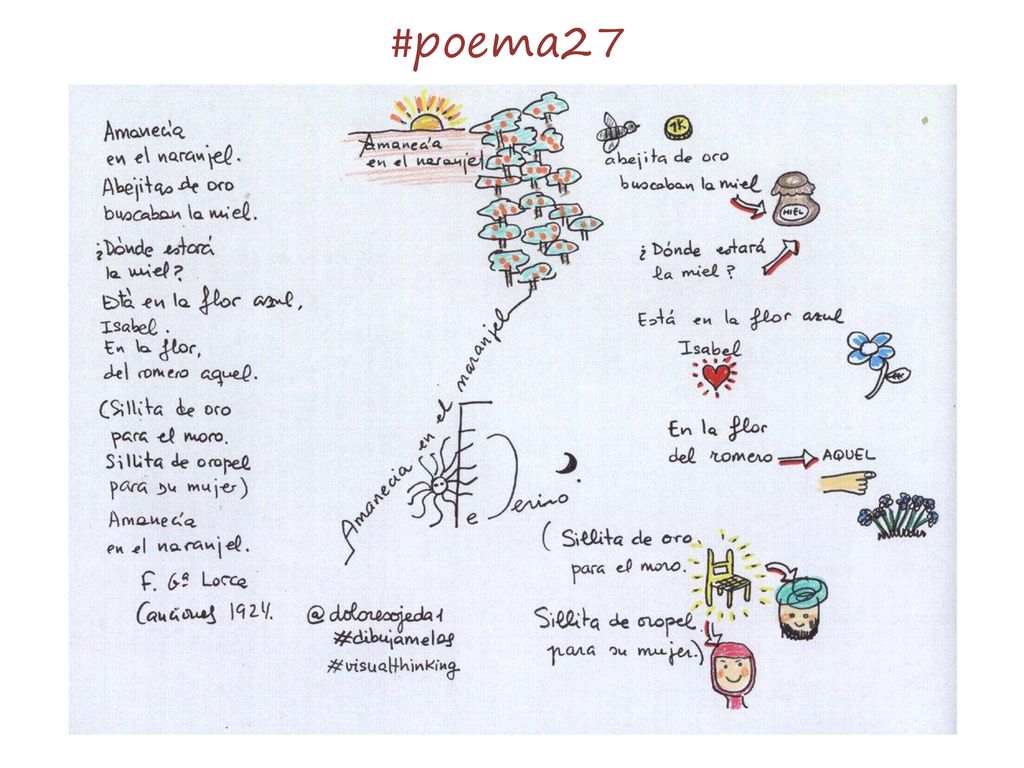 #poema27
Amanecía
en el naranjel.
Abejitas de oro
buscaban la miel.
¿Dónde estará
la miel?
Está en la flor azul,
Isabel.
En la flor,
del romero aquel.
(Sillita de oro
para el moro.
Sillita de oropel
para su mujer)
Amanecía
en el naranjel.
F. Gª Lorca
Canciones 1924.
Amanecía
en el naranjel
Amanecía en el naranjel
@doloresojeda1
#dibujamelas
#visualthinking
1K
abejita de oro
buscaban la miel
MIEL
¿Dónde estará
la miel?
Está en la flor azul
Isabel
En la flor
del romero AQUEL
(Sillita de oro
para el moro.
Sillita de oropel
para su mujer.)